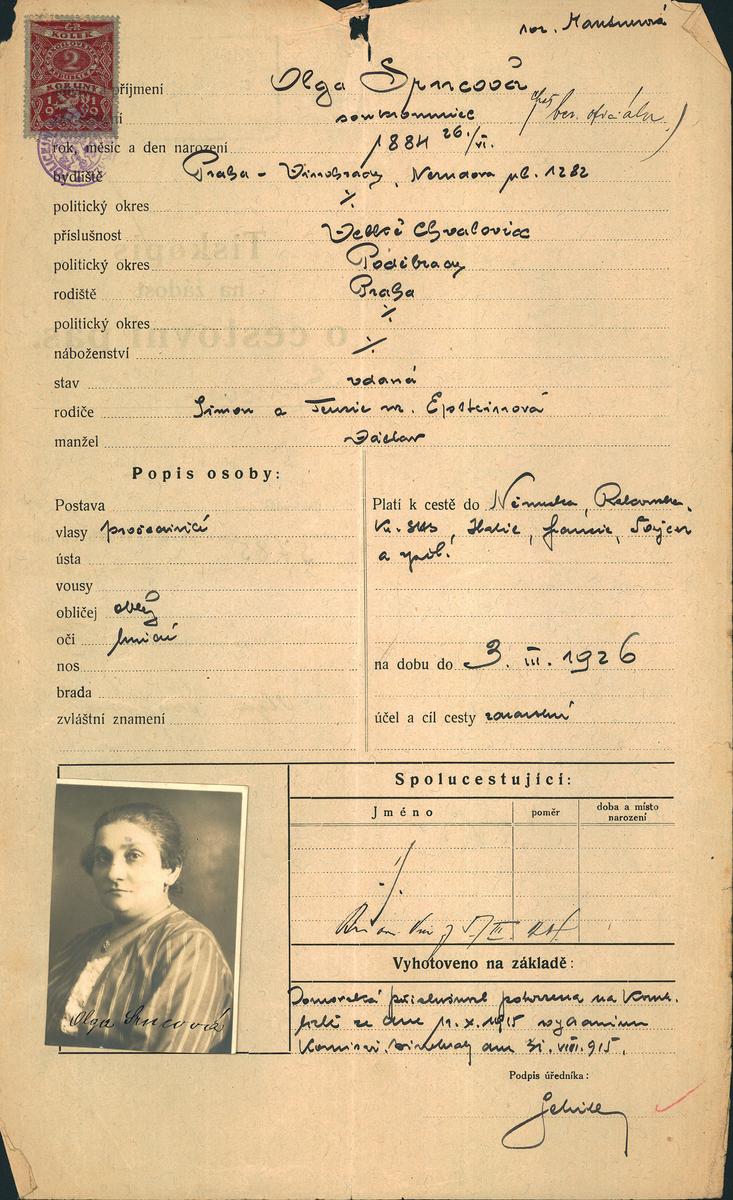 roz. Mautnerová
ČS. KOLEK
2
KORUNY
1919
příjmení Olga Srncová
soukromnice choť bes. oficiála
rok, měsíc a den narození 1884 26./VI.
bydliště Praha - Vinohrady, Nerudova čp. 1282
politický okres
příslušnost Velké Chvalovice
politický okres Poděbrady
rodiště Praha
politický okres
náboženství
stav vdaná
rodiče Simon a roz. Epsteinová
manžel Václav
Popis osoby:
Postava
vlasy prošedivělé
ústa
vousy
obličej oblý
oči hnědé
nos
brada
zvláštní znamení
Platí k cestě do Německa, Rakouska,
Kr. SHS, Italie, Francie, Švýcar
a zpět.
na dobu do 3. III. 1926
účel a cíl cesty
Olga Srncová
Spolucestující:
Jméno poměr doba a místo narození
Vyhotoveno na základě:
Domovská příslušnost potvrzena na
ze dne 11.X.1915
dne 31.VIII.915.
Podpis úředníka: